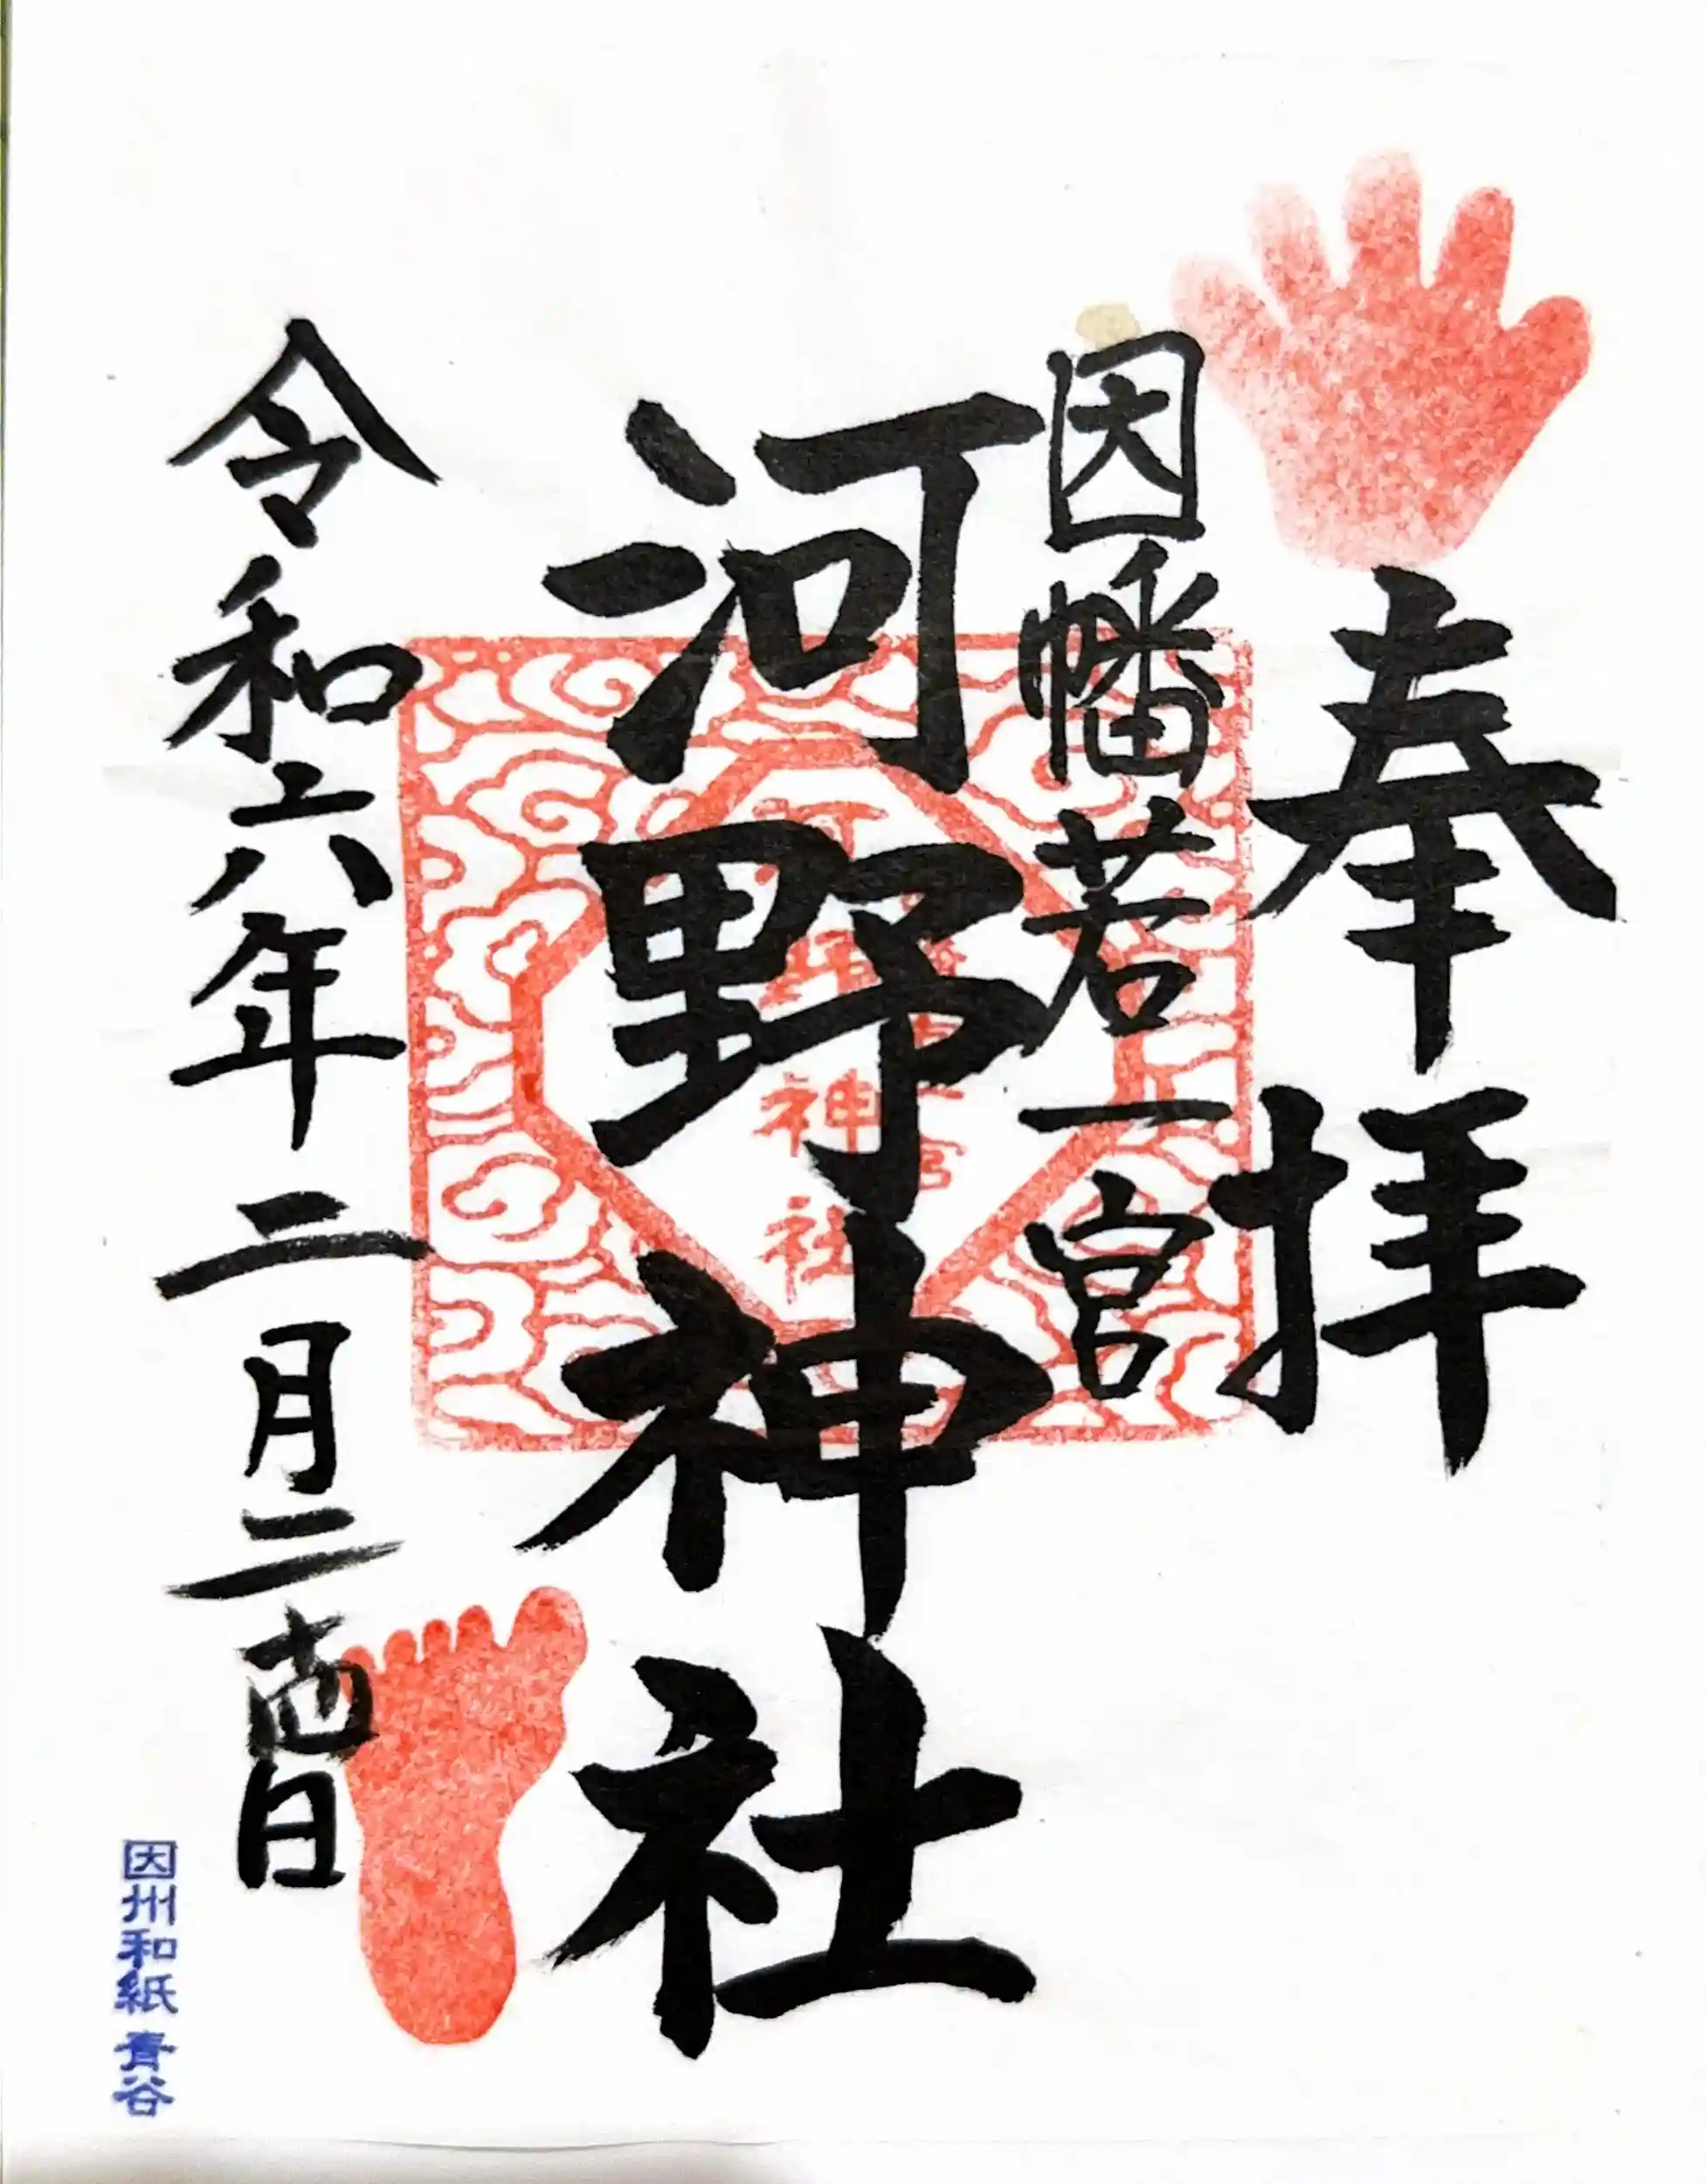 奉拝
因幡若一宮
河野神社
神社
令和六年二月二十四日
因州和紙 青谷